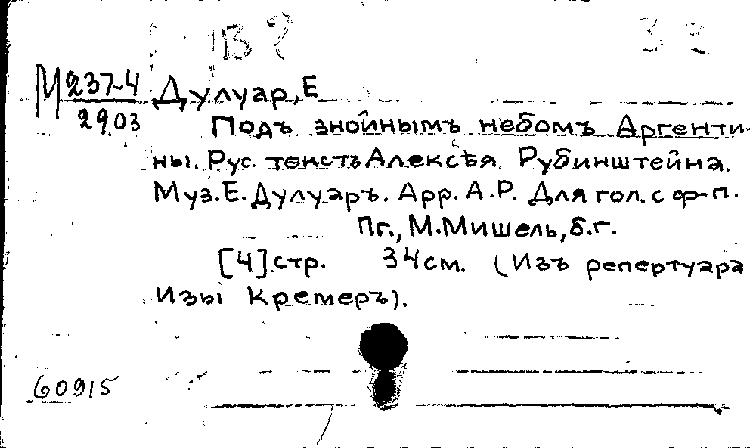 В?
М 237-4
2903
Дулуар, Е
Подъ знойнымъ небомъ Аргенти-
ны. Рус. текстъ Алексѣя Рубинштейна.
Муз. Е. Дулуаръ. Арр. А.Р. Для гол. с ф-п.
Пг., М. Мишель, б.г.
[4] стр. 34 см. (Изъ репертуара
Изы Кремеръ).
60915